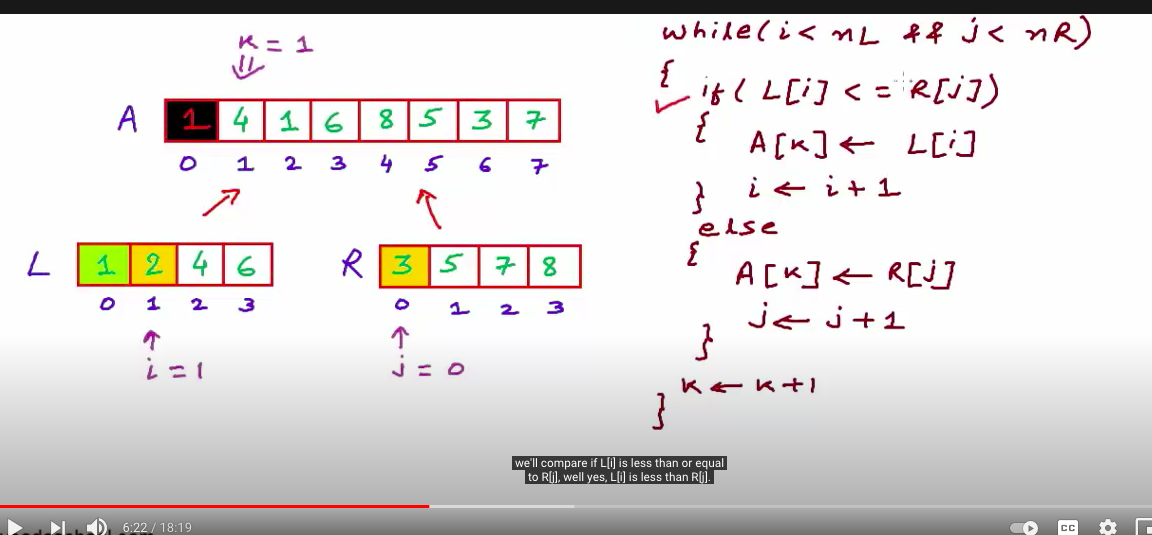 K = 1
A 1 4 1 6 8 5 3 7
0 1 2 3 4 5 6 7
L 1 2 4 6
0 1 2 3
i = 1
R 3 5 7 8
0 1 2 3
j = 0
while(i < nL && j < nR)
{
if( L[i] <= R[j])
{
A[K] ← L[i]
} i ← i + 1
else
{
A[K] ← R[j]
j ← j + 1
}
K ← K + 1
}
we'll compare if L[i] is less than or equal
to R[j], well yes, L[i] is less than R[j].
6:22 / 18:19
CC